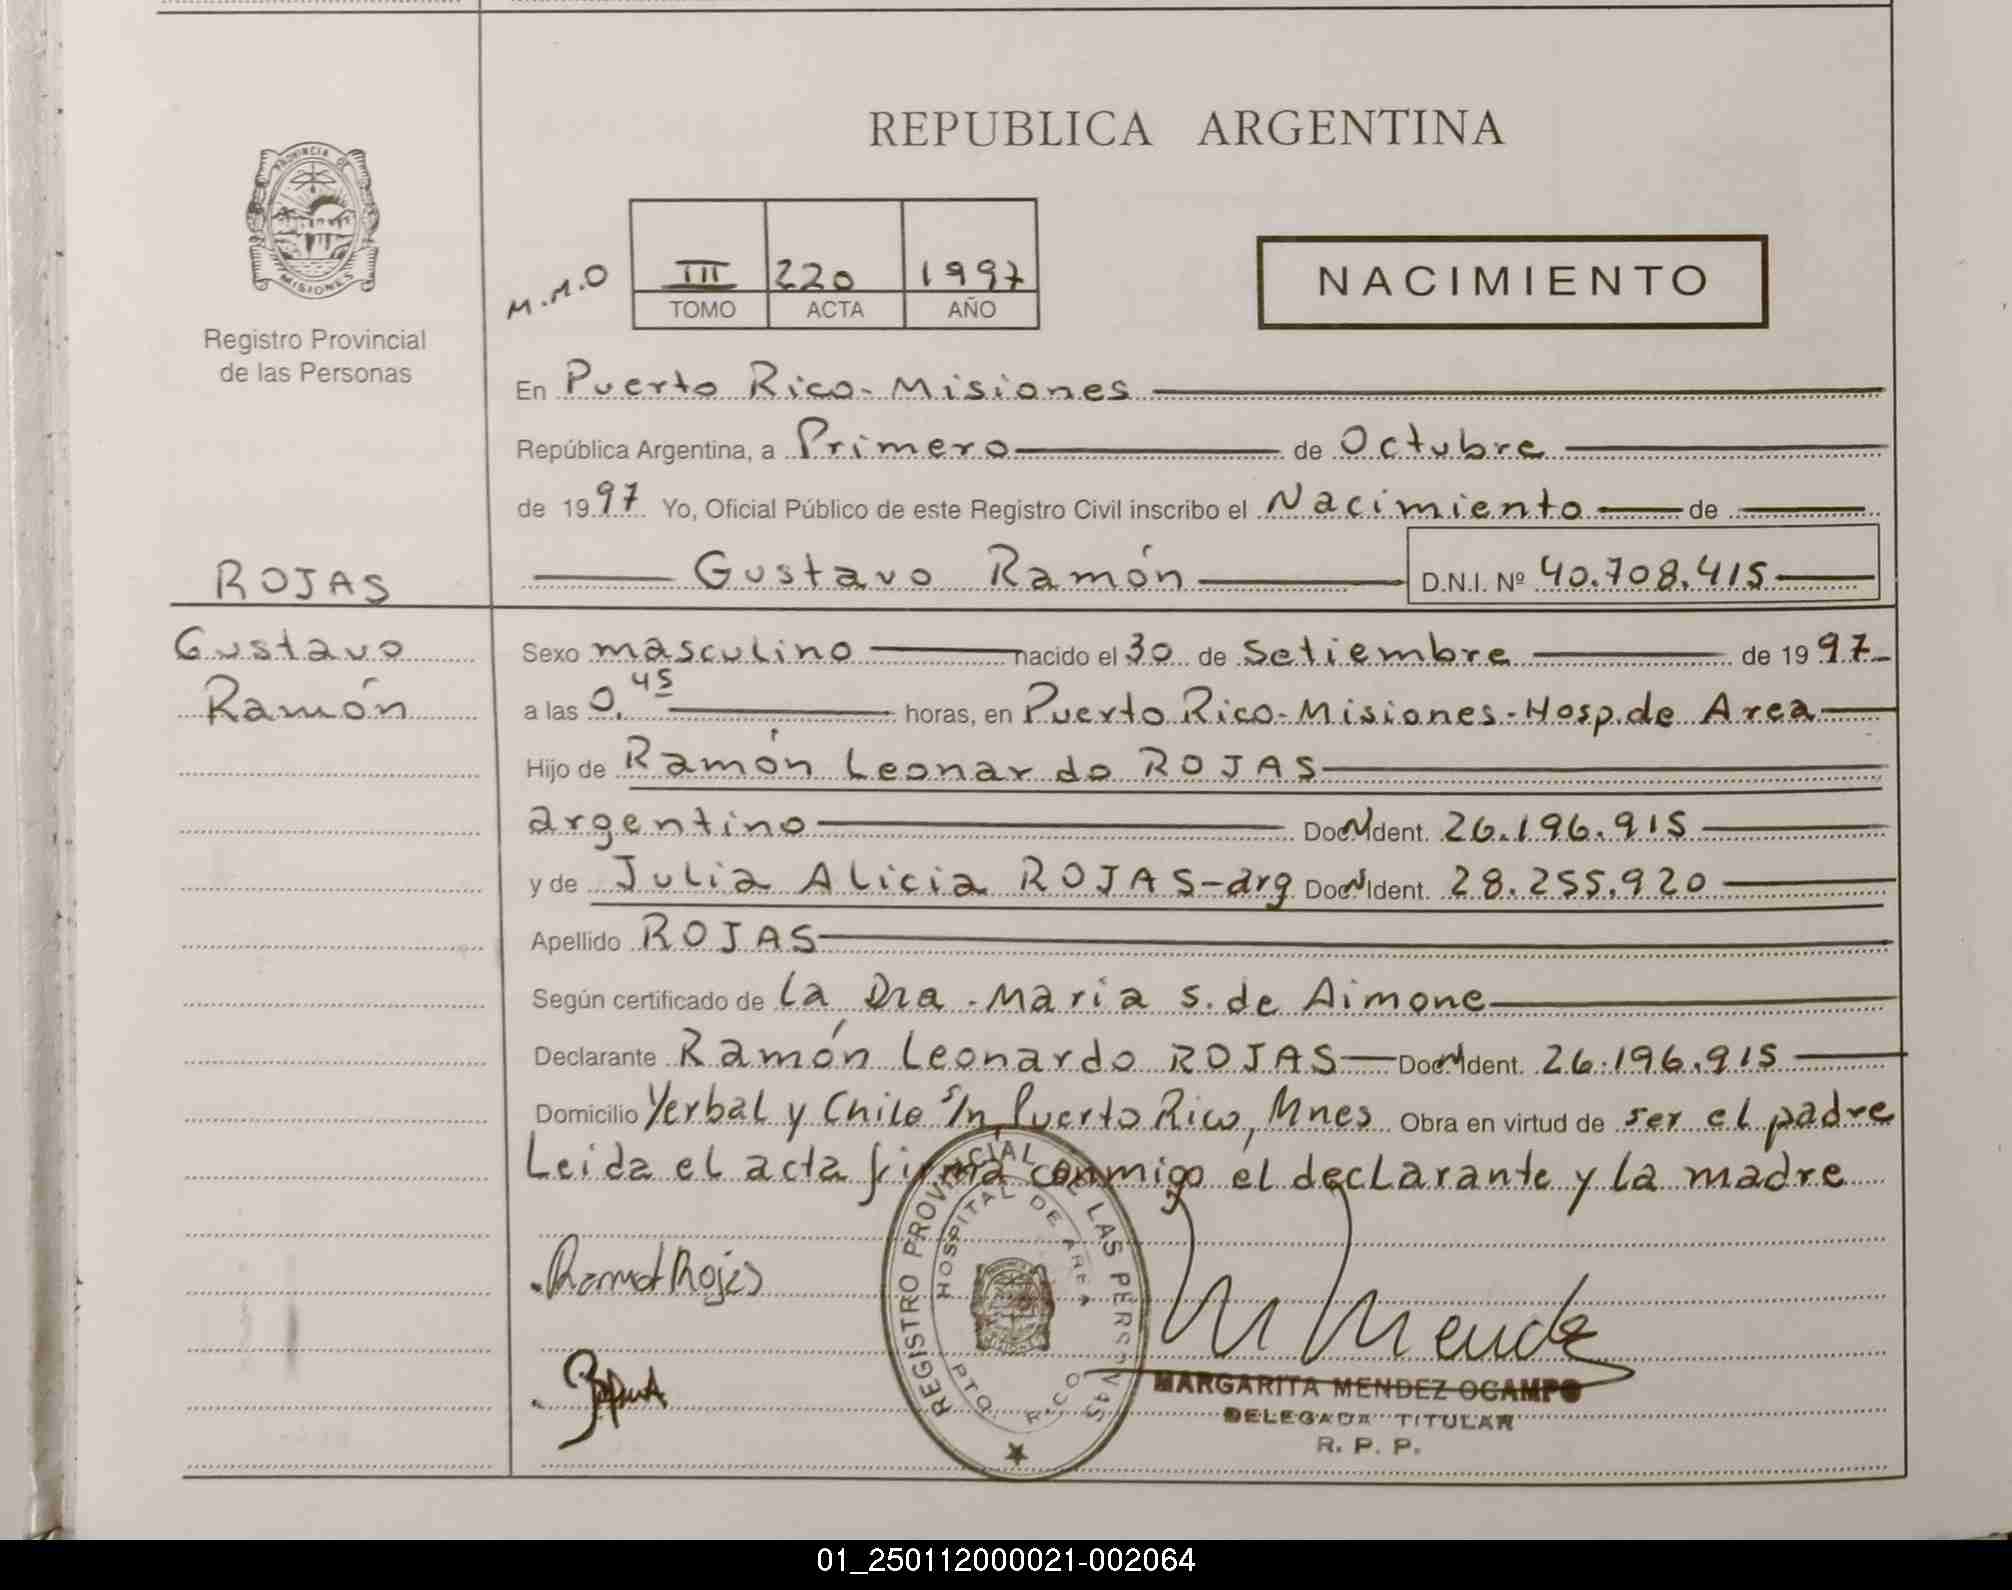 REPUBLICA ARGENTINA
PROVINCIA DE
MISIONES
Registro Provincial
de las Personas
M.M.O
III 220 1997
TOMO ACTA AÑO
NACIMIENTO
En Puerto Rico-Misiones
República Argentina, a Primero de Octubre
de 1997 Yo, Oficial Público de este Registro Civil inscribo el Nacimiento de
ROJAS
Gustavo Ramón D.N.I. Nº 40.708.415
Gustavo
Ramón
Sexo masculino nacido el 30 de Setiembre de 1997
a las 0.45 horas, en Puerto Rico-Misiones-Hosp.de Area
Hijo de Ramón Leonardo ROJAS
argentino Doc. Ident. 26.196.915
y de Julia Alicia ROJAS-arg Doc. Ident. 28.255.920
Apellido ROJAS
Según certificado de La Dra. Maria S. de Aimone
Declarante Ramón Leonardo ROJAS Doc. Ident. 26.196.915
Domicilio Yerbal y Chile S/n Puerto Rico, Mnes Obra en virtud de ser el padre
Leida el acta firma conmigo el declarante y la madre
REGISTRO PROVINCIAL DE LAS PERSONAS
HOSPITAL DE AREA
PTO. RICO
Rojas
M Mendez
MARGARITA MENDEZ OCAMPO
DELEGADA TITULAR
R. P. P.
01_250112000021-002064